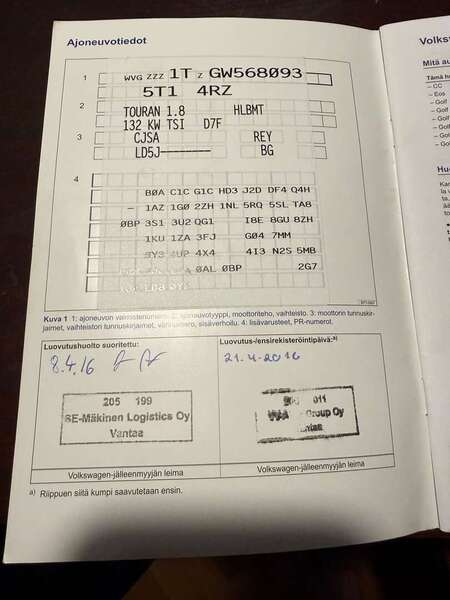 Ajoneuvotiedot
1
WVG ZZZ 1T Z GW568093
5T1 4RZ
2
TOURAN 1.8 HLBMT
132 KW TSI D7F
3
CJSA REY
LD5J-------- BG
4
B0A C1C G1C HD3 J2D DF4 Q4H
- 1AZ 1G0 2ZH 1NL 5RQ 5SL TA8
0BP 3S1 3U2 QG1 I8E 8GU 8ZH
1KU 1ZA 3FJ G04 7MM
4UP 4X4 4I3 N2S 5MB
0AL 0BP 2G7
Kuva 1 1; ajoneuvon valmistenumero. 2: ajoneuvotyyppi, moottoriteho, vaihteisto. 3: moottorin tunnuskir-
jaimet, vaihteiston tunnuskirjaimet, värinumero, sisäverhoilu. 4: lisävarusteet, PR-numerot.
Luovutushuolto suoritettu:
8.4.16
205 199
SE-Mäkinen Logistics Oy
Vantaa
Volkswagen-jälleenmyyjän leima
Luovutus-/ensirekisteröintipäivä:a)
21.4-2016
011
Group Oy
Vantaa
Volkswagen-jälleenmyyjän leima
a) Riippuen siitä kumpi saavutetaan ensin.
Volks
Mitä au
Tämä h
– CC
– Eos
– Golf
– Golf
– Golf
– Golf
– Golf
Hu